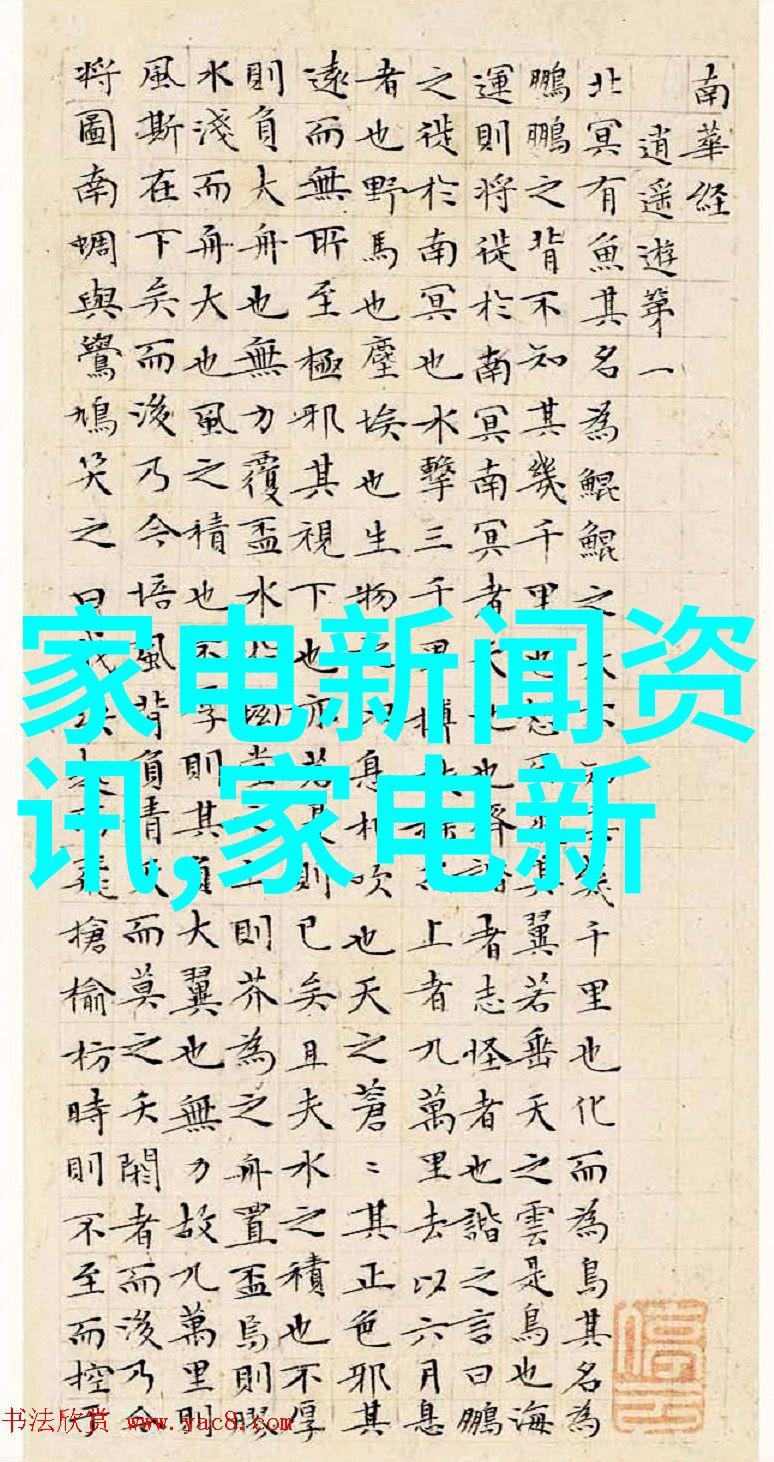 南華経
逍遥遊第一
北冥有魚其名為鯤鯤之大不知其幾千里也化而為鳥其名為
鵬鵬之背不知其幾千里也怒而其翼若垂天之雲是鳥也海
運則将徙於南冥南冥者天也齊諧者志怪者也諧之言曰鵬
之徙於南冥也水擊三千里摶扶上者九萬里去以六月息
者也野馬也塵埃也生物之以息相吹也天之蒼〻其正色邪其
遠而無所至極邪其視下也亦若是則已矣且夫水之積也不厚
則負大舟也無力覆盃水於坳堂之上則芥為之舟置盃焉則膠
水淺而舟大也風之積也不厚則其負大翼也無力故九萬里則
風斯在下矣而後乃今培風背負青天而莫之夭閼者而後乃今
将圖南蜩與鷽鳩笑之曰我決起而飛搶榆枋時則不至而控于
家电新闻资
讯,家电新
书法欣赏 www.yac8.com